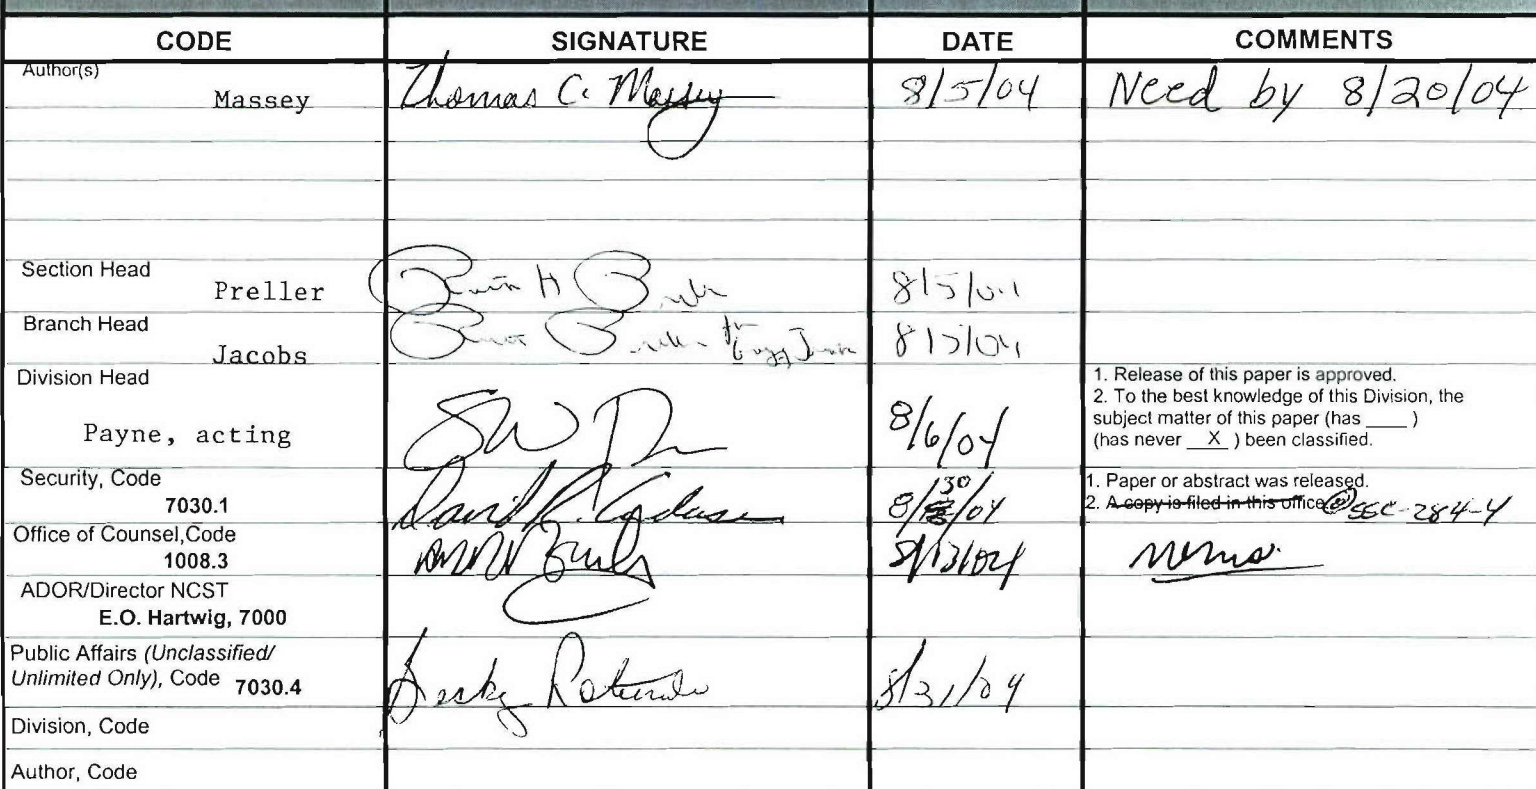 CODE SIGNATURE DATE COMMENTS
Author(s)
Massey Thomas C. Massey 8/5/04 Need by 8/20/04
Section Head
Preller H 8/5/04
Branch Head
Jacobs for 8/5/04
Division Head
Payne, acting 8/6/04
1. Release of this paper is approved.
2. To the best knowledge of this Division, the
subject matter of this paper (has ____ )
(has never X ) been classified.
Security, Code
7030.1 David R. 8/30/04
1. Paper or abstract was released.
2. A copy is filed in this office SSC-284-4
Office of Counsel,Code
1008.3 8/13/04
ADOR/Director NCST
E.O. Hartwig, 7000
Public Affairs (Unclassified/
Unlimited Only), Code 7030.4 8/31/04
Division, Code
Author, Code